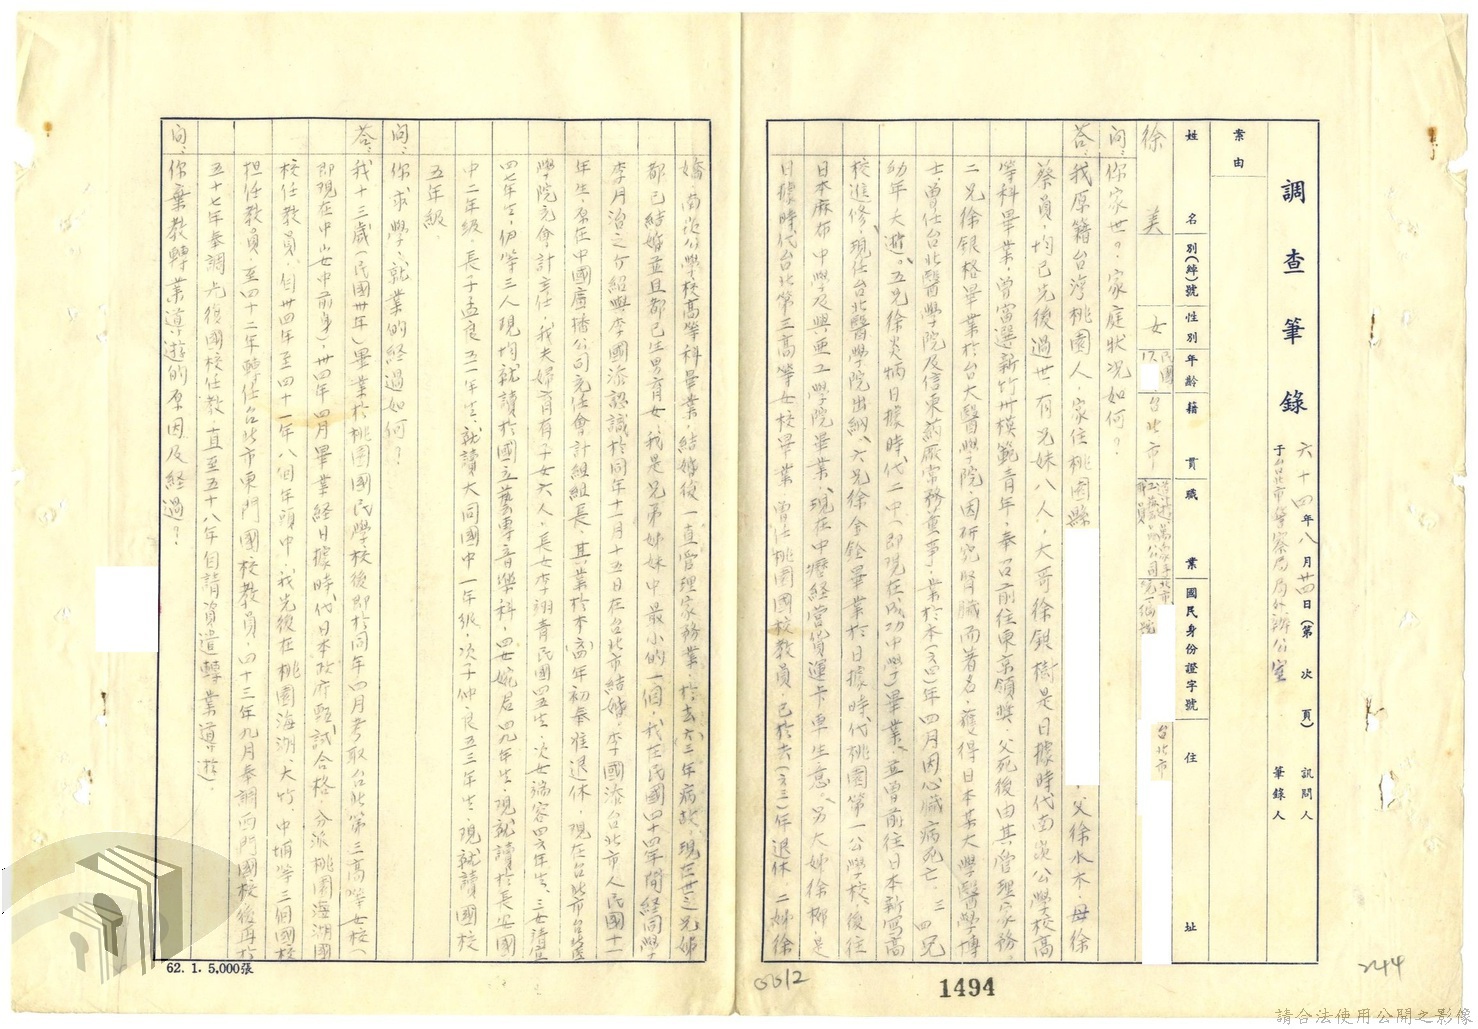 調查筆錄
六十四年八月廿四日(第 次 頁)
于台北市警察局局外辦公室
訊問人
筆錄人
案由
姓名
別(綽)號
性別
年齡
籍貫
職業
國民身份證字號
住址
徐 美
女
民國
17.
台北市
台北市
問:你家世?家庭狀况如何?
答:我原籍台灣桃園人,家住桃園縣 ,父徐水木,母徐
蔡員,均已先後過世,有兄妹八人,大哥徐銀樹是日據時代南崁公學校高
等科畢業,曾當選新竹州模範青年,奉召前往東京領獎,父死後由其管理家務。
二兄徐銀格畢業於台大醫學院,因研究腎臟而著名,獲得日本某大學醫學博
士,曾任台北醫學院及信東葯廠常務董事,業於本(六四)年四月因心臟病死亡。三、四兄
幼年夭逝。五兄徐炎炳日據時代二中(即現在成功中學)畢業,並曾前往日本新寫高
校進修,現任台北醫學院出納。六兄徐金銓畢業於日據時代桃園第一公學校,後往
日本麻布中學及興亜工學院畢業,現在中壢經營貨運卡車生意。另大姊徐柳是
日據時代台北第三高等女校畢業,曾任桃園國校教員,已於去(六三)年退休,二姊徐
嬌南崁公學校高等科畢業,結婚後一直管理家務業,於去六三年病故,現在世之兄姊
都已結婚並且都已生男育女,我是兄弟姊妹中最小的一個,我在民國四十四年間經同學
李月治之介紹與李國添認識於同年十一月十五日在台北市結婚,李國添台北市人民國十一
年生,原在中國廣播公司充任會計組組長,其業於本(64)年初奉准退休,現在台北市台北醫
學院充會計主任,我夫婦育有子女六人,長女李翊青民國四五生,次女端容四六年生,三女
四七年生,伊等三人現均就讀於國立藝專音樂科,四女婉君四九年生,現就讀於長安國
中二年級,長子孟良五一年生,就讀大同國中一年級,次子仲良五三年生,現就讀國校
五年級。
問:你求學、就業的經過如何?
答:我十三歲(民國卅年)畢業於桃園國民學校後即於同年四月考取台北第三高等女校(
即現在中山女中前身),卅四年四月畢業經日據時代日本政府甄試合格,分派桃園海湖國
校任教員。自卅四年至四十一年八個年頭中,我先後在桃園海湖、大竹、中埔等三個國校
担任教員,至四十二年轉任台北市東門國校教員,四十三年九月奉調西門國校後再於
五十七年奉調光復國校任教一直至五十八年自請資遣轉業導遊。
問:你棄教轉業導遊的原因及經過?
62. 1. 5,000張
0612
1494
244
請合法使用公開之影像